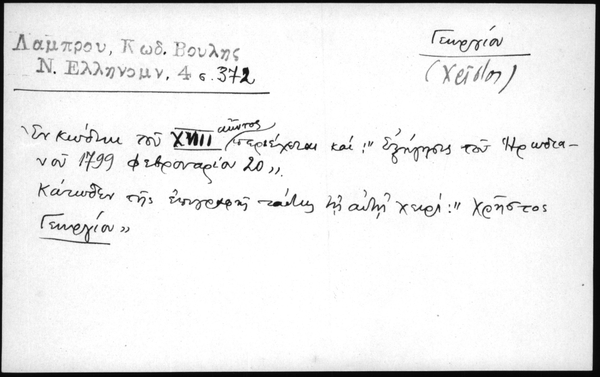 Λάμπρου, Κωδ. Βουλῆς
Ν. Ἑλληνομν. 4 σ. 372
Γεωργίου
(Χρῆστος)
Ἐν κώδικι τοῦ XVIII αἰῶνος περιέχεται καί: "Ἐξήγησις τοῦ Ἡρωδια-
νοῦ 1799 φεβρουαρίου 20".
Κάτωθεν τῆς ἐπιγραφῆς ταύτης τῇ αὐτῇ χειρί: "Χρῆστος
Γεωργίου"